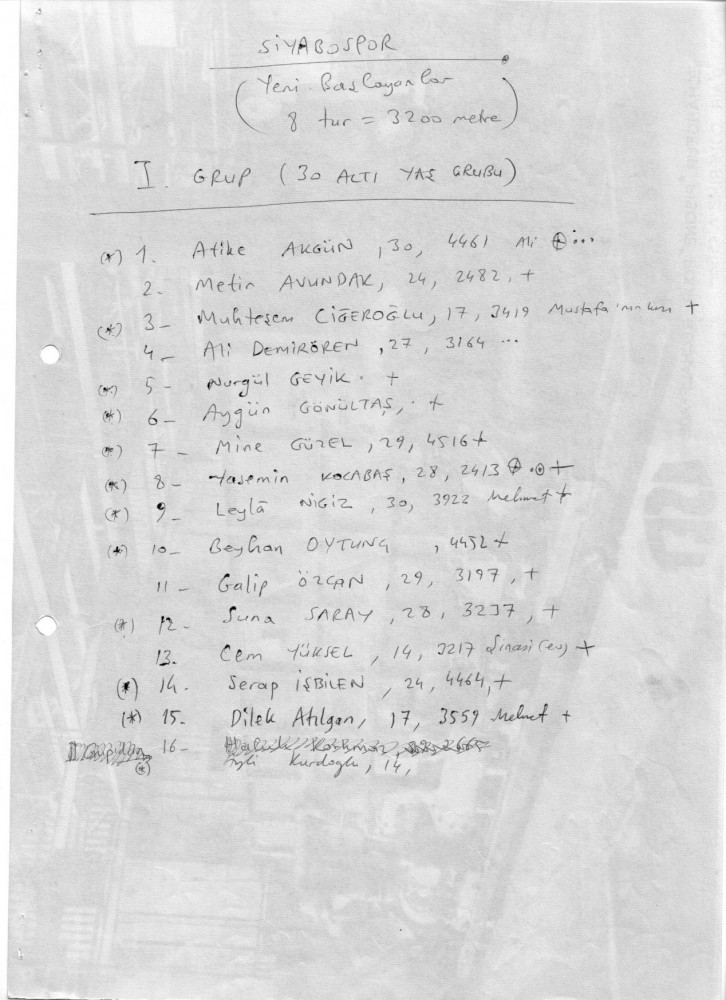 SİYABOSPOR
(Yeni Başlayanlar
8 tur = 3200 metre)
I. GRUP (30 ALTI YAŞ GRUBU)
(*) 1. Atike AKGÜN, 30, 4461 Ali ⊕...
2. Metin AVUNDAK, 24, 2482, +
(*) 3- Muhteşem CİĞEROĞLU, 17, 3419 Mustafa'nın kızı +
4- Ali DEMİRÖREN, 27, 3164 ...
(*) 5- Nurgül GEYİK. +
(*) 6- Aygün GÖNÜLTAŞ, . +
(*) 7- Mine GÜZEL, 29, 4516 +
(*) 8- Yasemin KOCABAŞ, 28, 2413 ⊕ .⊙ +
(*) 9- Leylâ NİGİZ, 30, 3922 Mehmet +
(*) 10- Beyhan OYTUNÇ, 4452 +
11- Galip ÖZCAN, 29, 3197, +
(*) 12- Suna SARAY, 28, 3237, +
13. Cem YÜKSEL, 14, 3217 Şinasi (ev) +
(*) 14. Serap İŞBİLEN, 24, 4464, +
(*) 15. Dilek Atılgan, 17, 3559 Mehmet +
16-
(*) Kurdoğlu, 14,